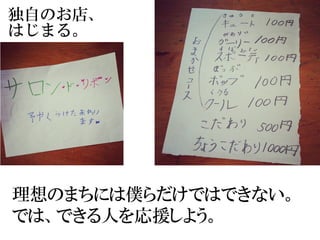 独自のお店、
はじまる。
サロン・ド・リボン
予やくうけたまわり
ます
おまかせコース
キュート 100円
ガーリー 100円
スポーティ 100円
ぽっぷ
ポップ 100円
くうる
クール 100円
こだわり 500円
ちょうこだわり 1000円
理想のまちには僕らだけではできない。
では、できる人を応援しよう。